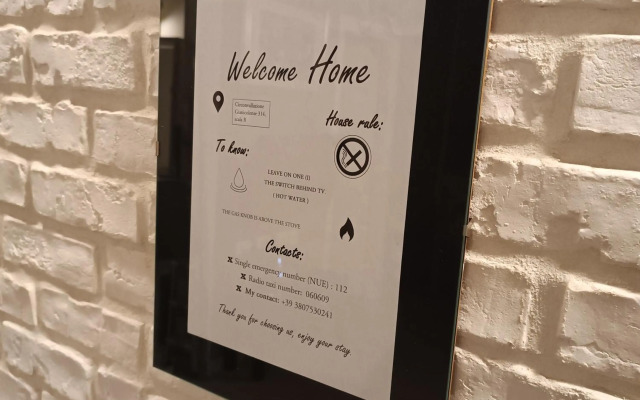 Welcome Home
House rule:
To know:
LEAVE ON ONE (I)
THE SWITCH BEHIND TV.
( HOT WATER )
THE GAS KNOB IS ABOVE THE STOVE
Contacts:
Single emergency number (NUE) : 112
Radio taxi number: 060609
My contact: +39 3807550241
Thank you for choosing us, enjoy your stay.